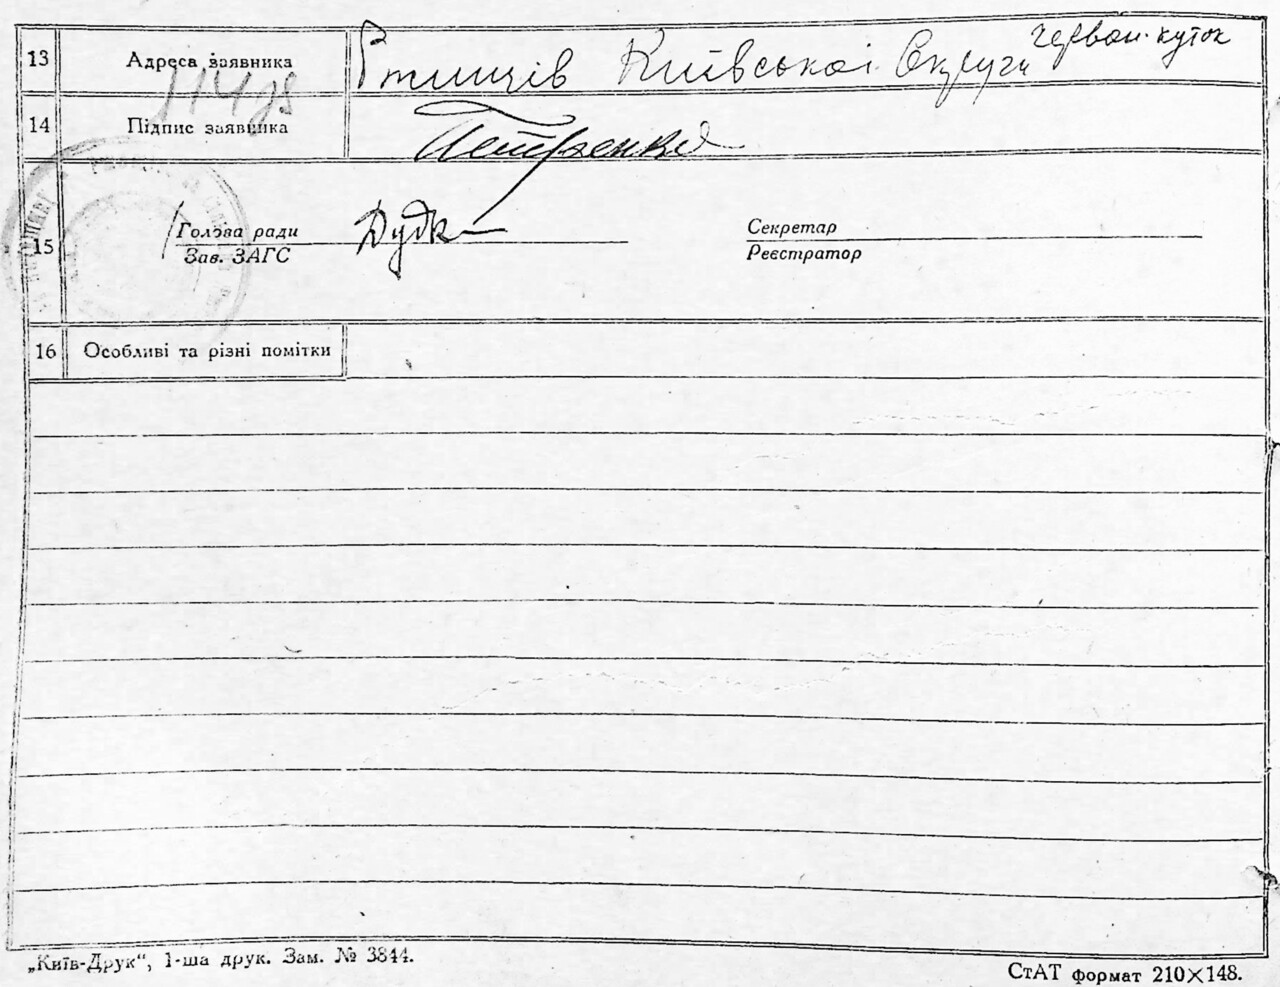 13 Адреса заявника Ржищів Київської Округи Червон. куток
14 Підпис заявника Петренко
15 Голова ради Дудк Секретар
Зав. ЗАГС Реєстратор
16 Особливі та різні помітки
„Київ-Друк“, 1-ша друк. Зам. № 3844.
СтАТ формат 210×148.